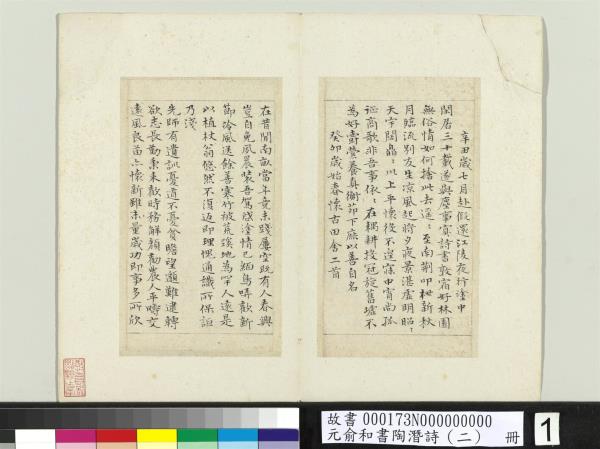 辛丑歲七月赴假還江陵夜行塗中
閑居三十載遂與塵事冥詩書敦宿好林園
無俗情如何捨此去遥〻至南荆叩枻新秋
月臨流别友生凉風起將夕夜景湛虚明昭〻
天宇闊皛〻川上平懷役不遑寐中宵尚孤
征商歌非吾事依〻在耦耕投冠旋舊墟不
為好爵縈養真衡茆下庶以善自名
癸卯歲始春懷古田舍二首
在昔聞南畝當年竟未踐屢空既有人春興
豈自免夙晨裝吾駕啟塗情已緬鳥哢歡新
節泠風送餘善寒竹被荒蹊地為罕人遠是
以植杖翁悠然不復返即理愧通識所保詎
乃淺
先師有遺訓憂道不憂貧瞻望邈難逮轉
欲志長勤秉耒歡時務解顔勸農人平疇交
遠風良苗亦懷新雖未量歲功即事多所欣
故書 000173N000000000
元俞和書陶潛詩(二) 冊
1